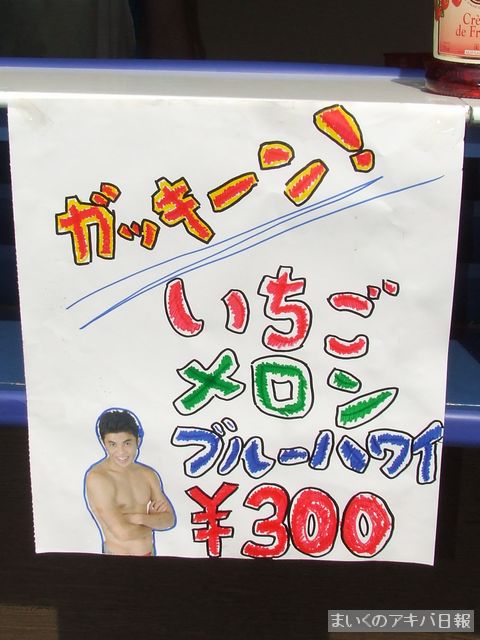 Crè
de Fr
ガッキーン!
いちご
メロン
ブルーハワイ
¥300
まいくのアキバ日報